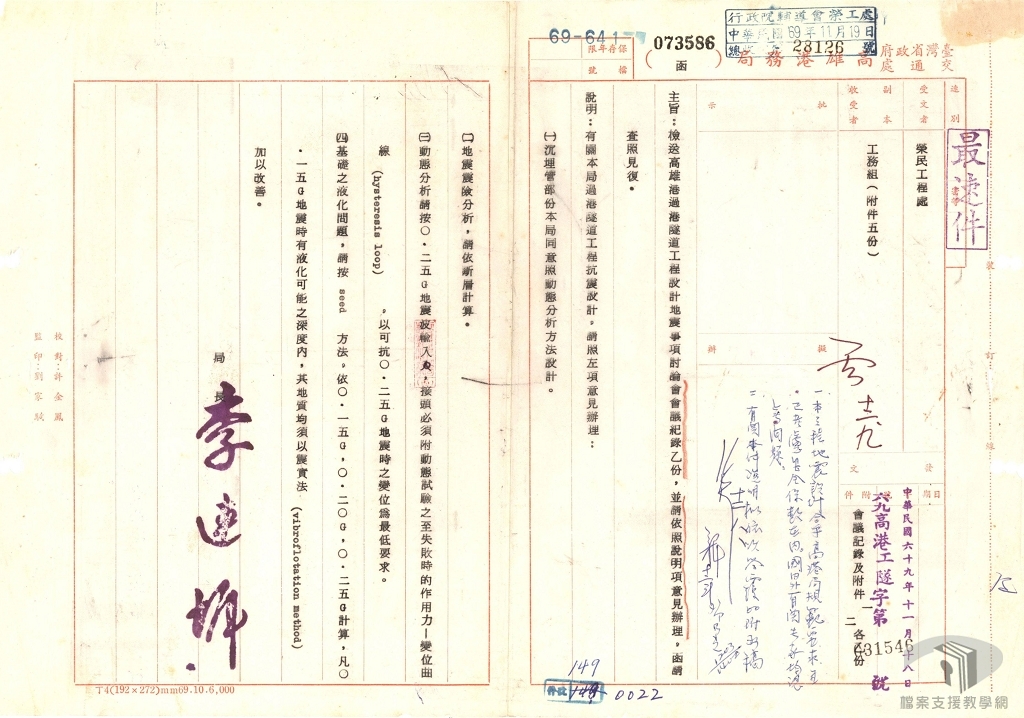 行政院輔導會榮工處
中華民國69年11月19日
總收 28126 號
69-641
保存年限
檔號
073586
臺灣省政府交通處
高雄港務局
（函）
速別
最速件
受文者
榮民工程處
副本收受者
工務組（附件五份）
批示
擬辦
發文
日期
中華民國六十九年十一月十八日
六九高港工隧字第 031546 號
附件
會議記錄及附件一、二各乙份
主旨：檢送高雄港過港隧道工程設計地震事項討論會會議紀錄乙份，並請依照說明項意見辦理，函請
查照見復。
說明：有關本局過港隧道工程抗震設計，請照左項意見辦理：
㈠沉埋管部份本局同意照動態分析方法設計。
㈡地震震險分析，請依斷層計算。
㈢動態分析請按〇・二五G地震波輸入，接頭必須附動態試驗之至失敗時的作用力—變位曲
線 (hysteresis loop) ，以可抗〇・二五G地震時之變位為最低要求。
㈣基礎之液化問題，請按 seed 方法。依〇・一五G，〇・二〇G，〇・二五G計算，凡〇
・一五G地震時有液化可能之深度內，其地質均須以震實法 (vibroflotation method)
加以改善。
局長 李連墀
校對：許金鳳
監印：劉家駿
裝 訂 線
T4(192×272)mm69.10.6,000
149
0022
檔案支援教學網